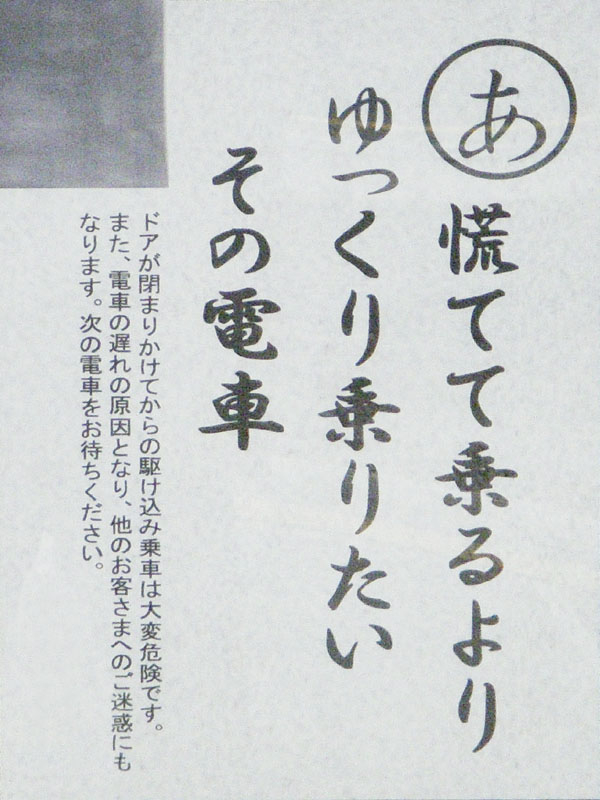 あ
慌てて乗るより
ゆっくり乗りたい
その電車
ドアが閉まりかけてからの駆け込み乗車は大変危険です。
また、電車の遅れの原因となり、他のお客さまへのご迷惑にも
なります。次の電車をお待ちください。